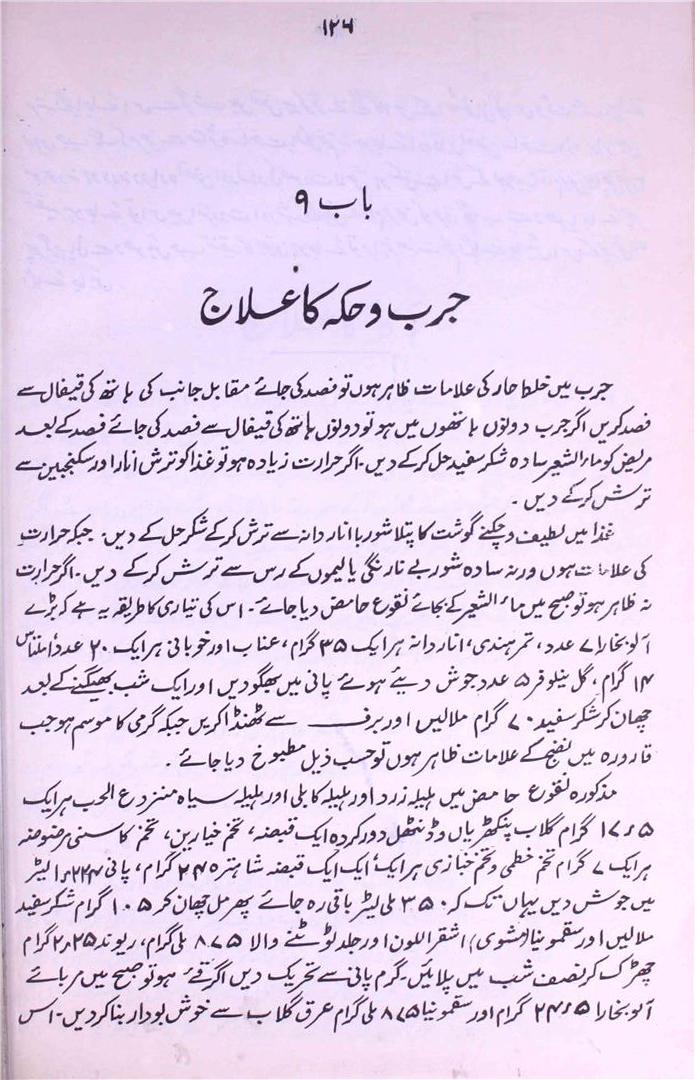 ۱۲۶
باب ۹
جرب و حکہ کا علاج
جرب میں خلط حار کی علامات ظاہر ہوں تو فصد کی جائے مقابل جانب کی ہاتھ کی قیفال سے
فصد کریں اگر جرب دونوں ہاتھوں میں ہو تو دونوں ہاتھ کی قیفال سے فصد کی جائے فصد کے بعد
مریض کو ماء الشعیر سادہ شکر سفید حل کر کے دیں۔ اگر حرارت زیادہ ہو تو غذا کو ترش انار اور سکنجبین سے
ترش کر کے دیں۔
غذا میں لطیف و چکنے گوشت کا پتلا شوربا انار دانہ سے ترش کر کے شکر حل کے دیں۔ جبکہ حرارت
کی علامات ہوں ورنہ سادہ شوربے نارنگی یا لیموں کے رس سے ترش کر کے دیں۔ اگر حرارت
نہ ظاہر ہو تو صبح میں ماء الشعیر کے بجائے نقوع حامض دیا جائے۔ اس کی تیاری کا طریقہ یہ ہے کہ بڑے
آلو بخارا ۷ عدد، تمر ہندی، انار دانہ ہر ایک ۳۵ گرام، عناب اور خوبانی ہر ایک ۲۰ عدد املتاس
۱۴ گرام، گل نیلوفر ۵ عدد جوش دیئے ہوئے پانی میں بھگو دیں اور ایک شب بھیگنے کے بعد
چھان کر شکر سفید ۷۰ گرام ملالیں اور برف سے ٹھنڈا کریں جبکہ گرمی کا موسم ہو جب
قارورہ میں نضج کے علامات ظاہر ہوں تو حسب ذیل مطبوخ دیا جائے۔
مذکورہ نقوع حامض میں ہلیلہ زرد اور ہلیلہ کابلی اور ہلیلہ سیاہ منزوع الحب ہر ایک
۱۷٫۵ گرام گلاب پنکھڑیاں و ڈنٹھل دور کردہ ایک قبضہ، تخم خیارین، تخم کاسنی مرضوضہ
ہر ایک ۷ گرام تخم خطمی و تخم خبازی ہر ایک ایک ایک قبضہ شاہترہ ۲۴ گرام، پانی ۱٫۲۲۴ لیٹر
میں جوش دیں یہاں تک کہ ۳۵۰ ملی لیٹر باقی رہ جائے پھر مل چھان کر ۱۰۵ گرام شکر سفید
ملالیں اور سقمونیا (مشوی) اشقر اللون اور جلد ٹوٹنے والا ۸۷۵ ملی گرام، ریوند ۲٫۲۵ گرام
چھڑک کر نصف شب میں پلائیں۔ گرم پانی سے تحریک دیں اگر قے ہو تو صبح میں مربائے
آلو بخارا ۲۴٫۵ گرام اور سقمونیا ۸۷۵ ملی گرام عرق گلاب سے خوش بودار بنا کر دیں۔ اس